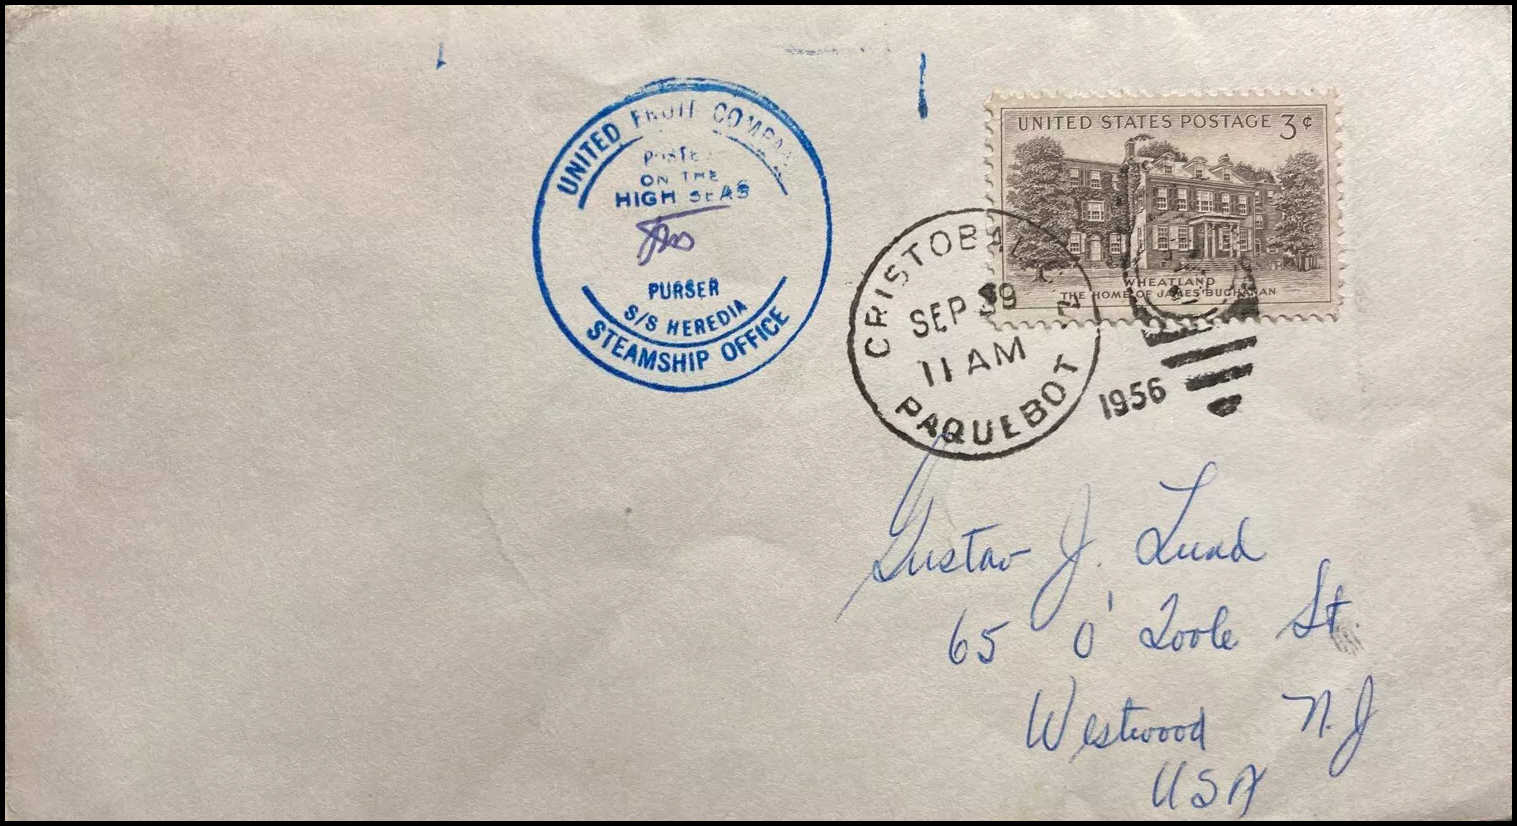 UNITED FRUIT COMPANY
POSTED
ON THE
HIGH SEAS
PURSER
S/S HEREDIA
STEAMSHIP OFFICE
UNITED STATES POSTAGE 3¢
WHEATLAND
THE HOME OF JAMES BUCHANAN
CRISTOBAL
SEP
11 AM
PAQUEBOT
1956
Gustav J. Lund
65 O'Toole St.
Westwood N.J
USA